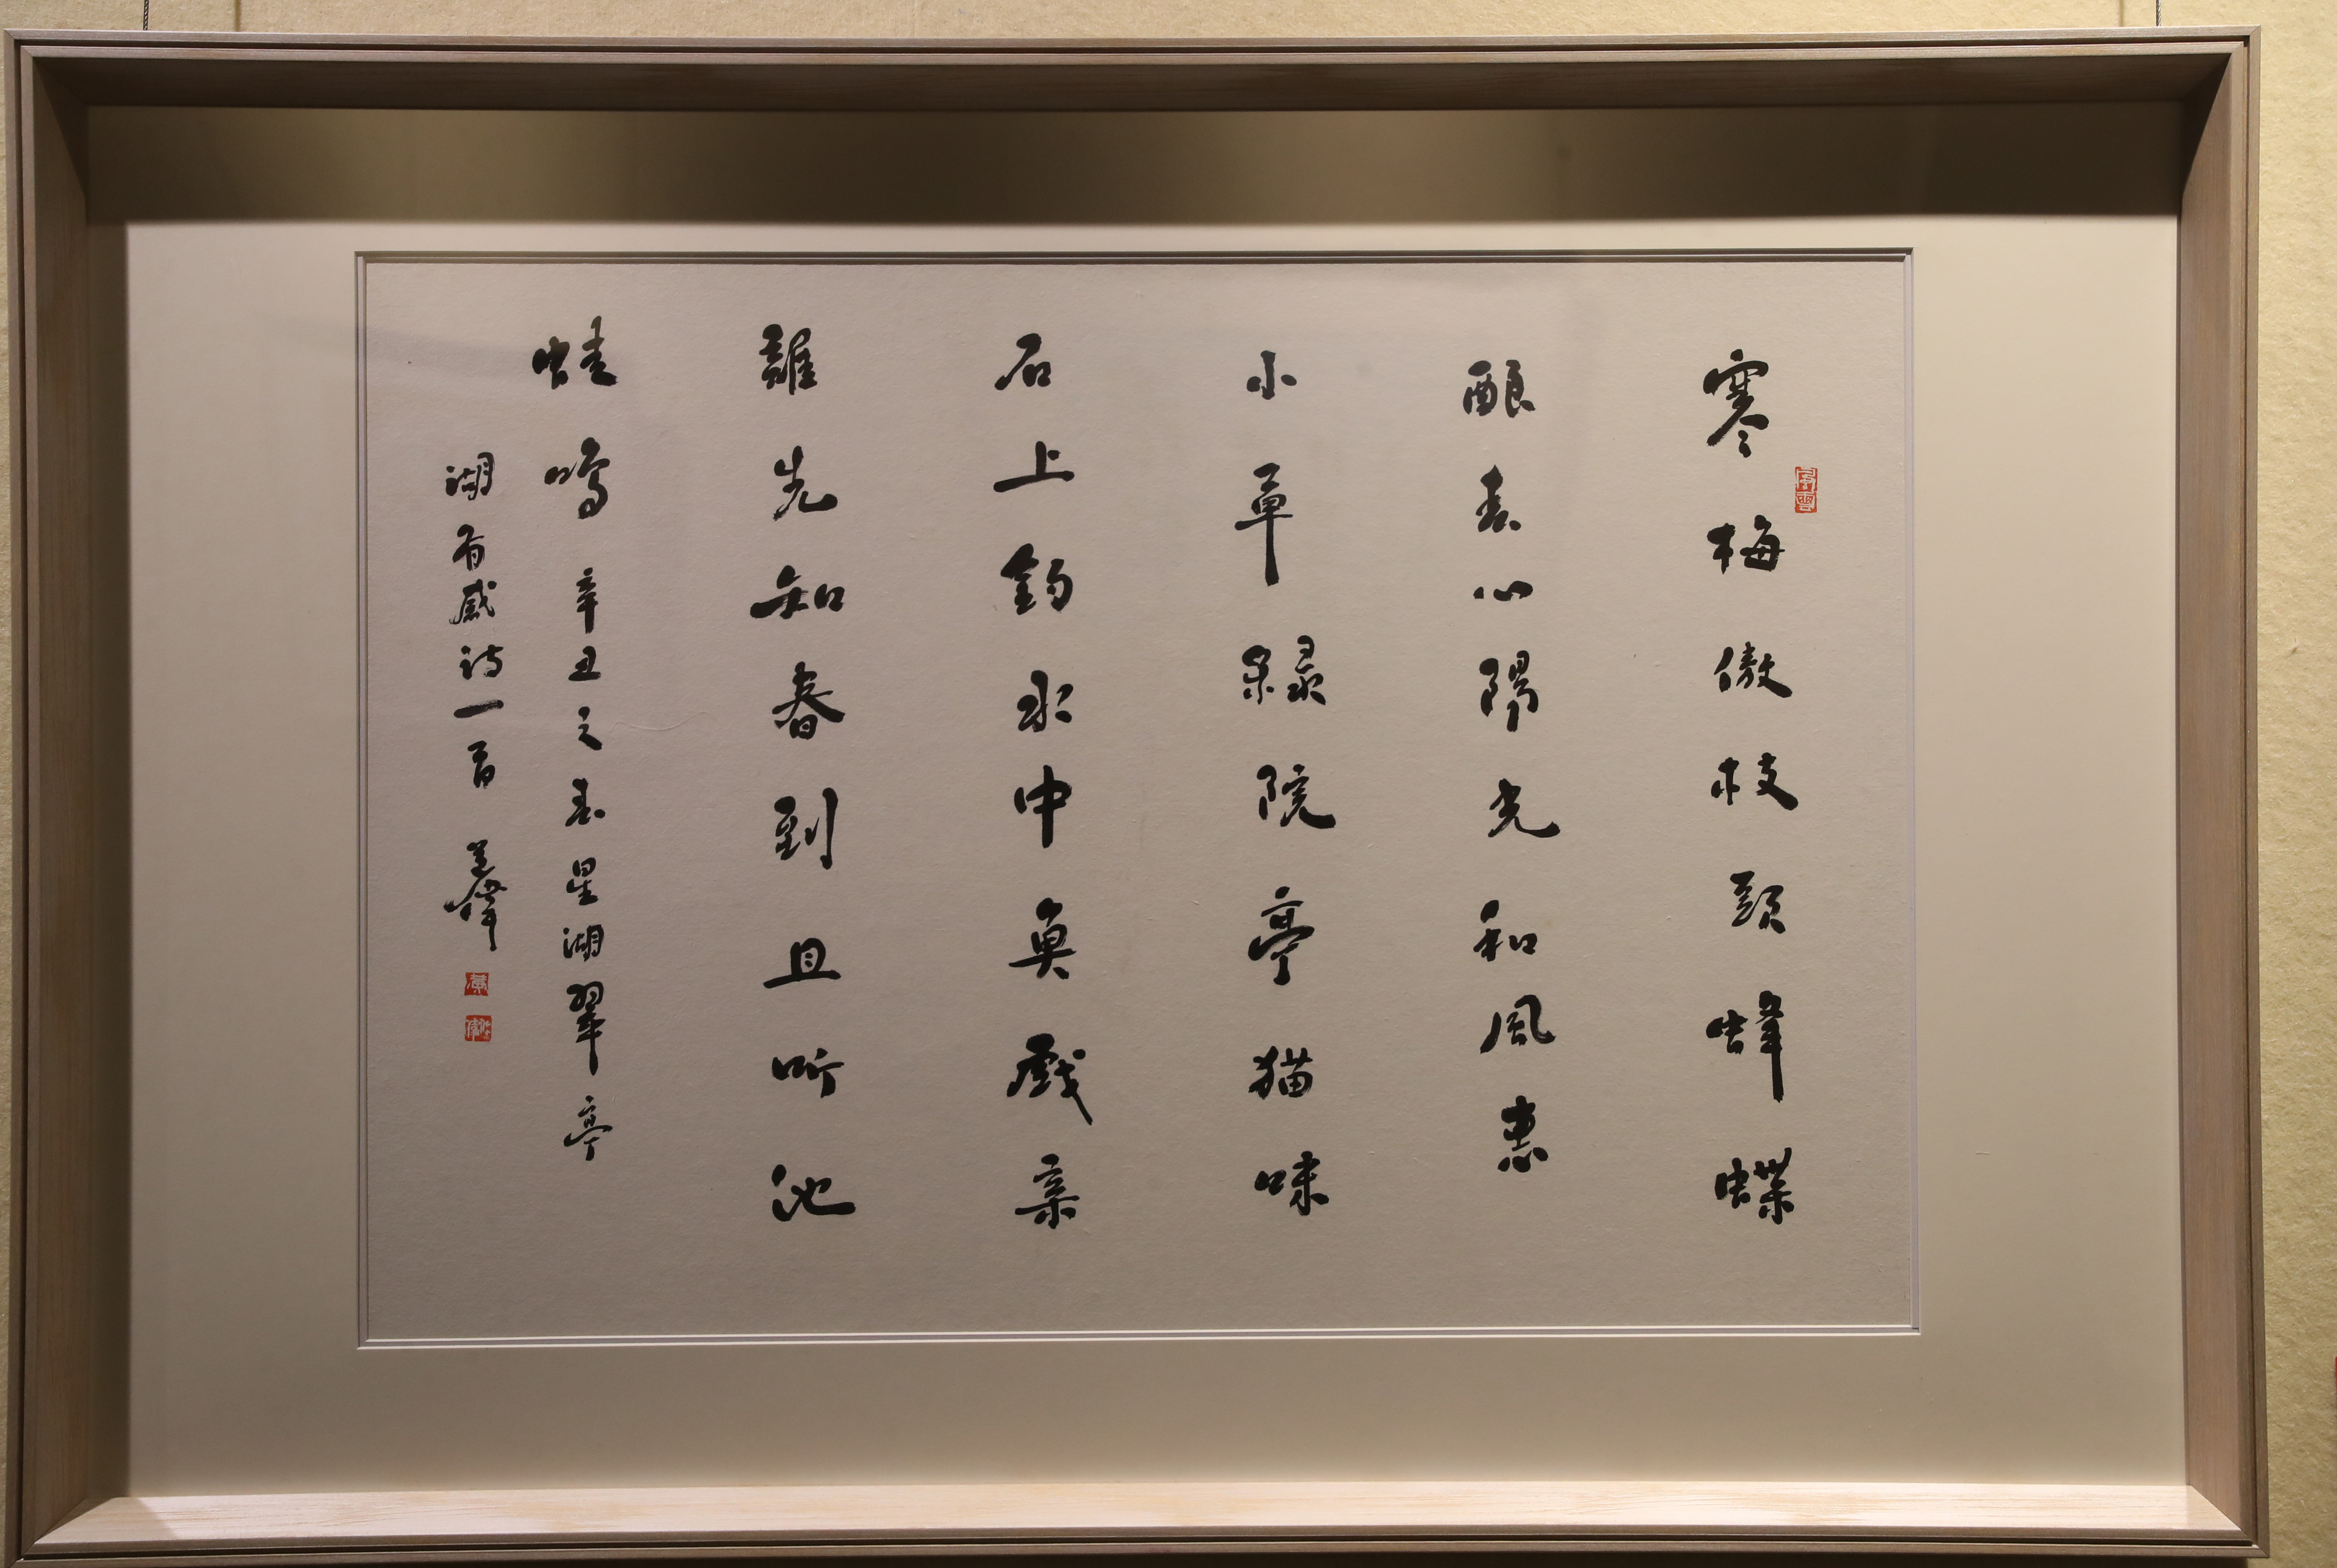 寒梅傲枝頭蜂蝶
酿春心陽光和風惠
小草緑院亭猫味
石上釣水中魚戲亲
誰先知春到且听池
蛙鳴 辛丑之春星湖翠亭
湖有感诗一首